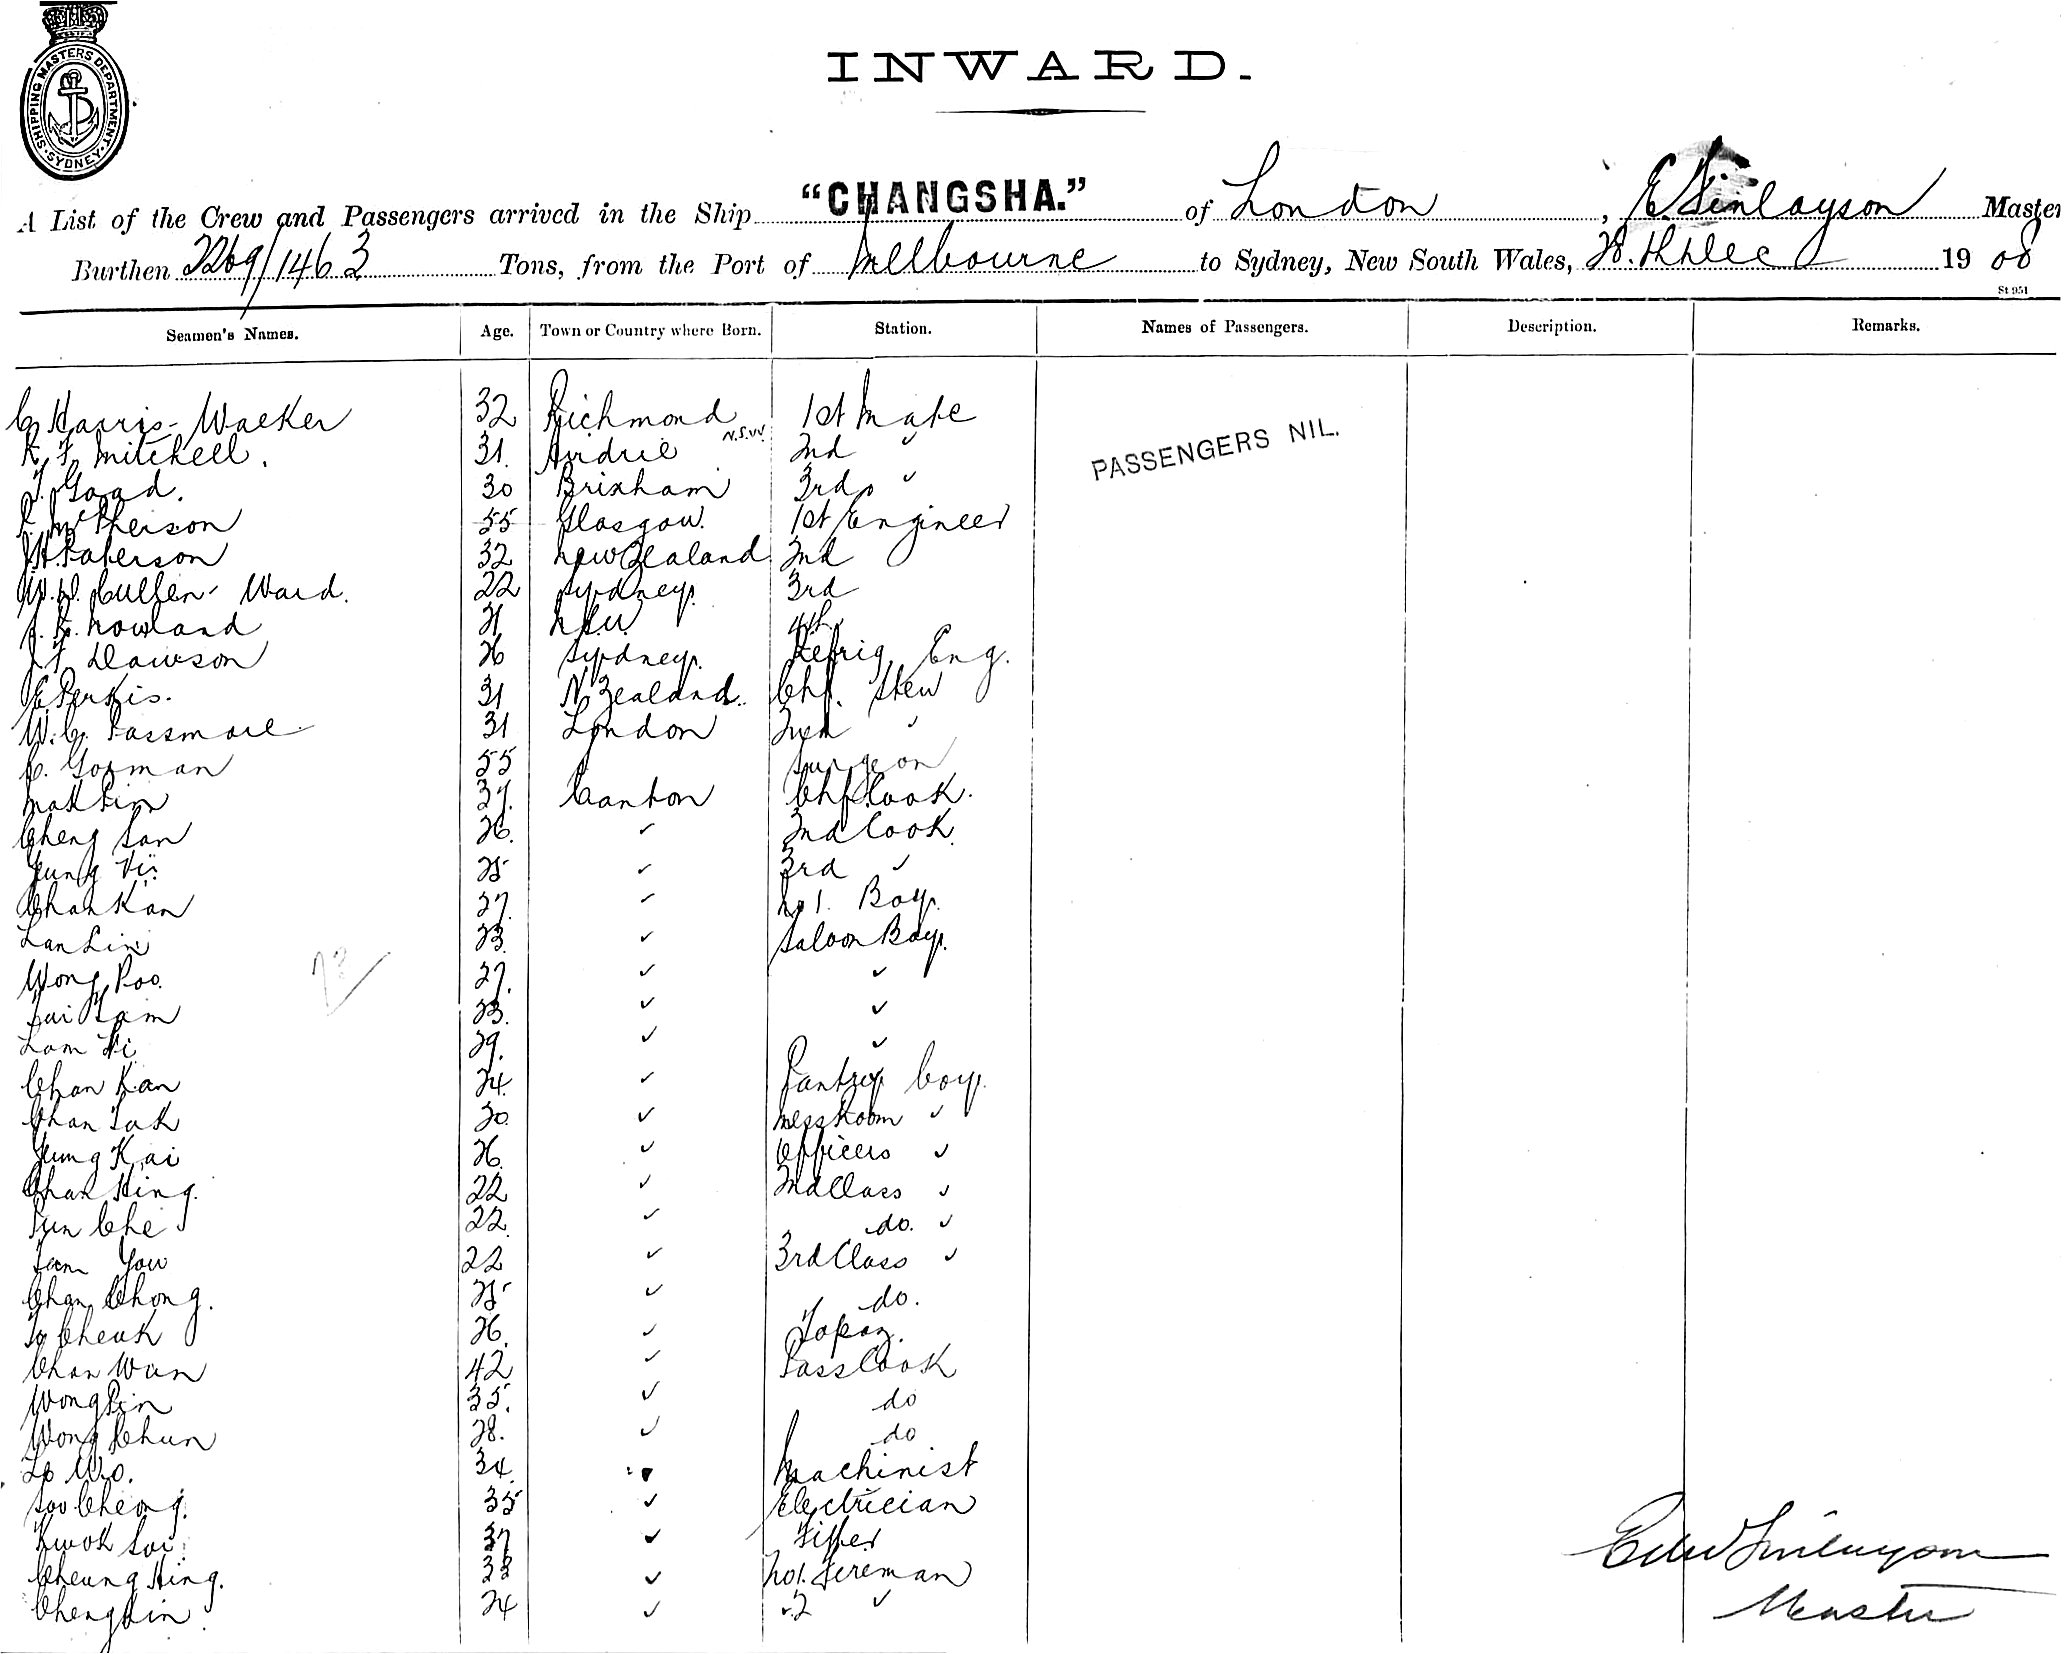 SHIPPING MASTERS DEPARTMENT
SYDNEY
INWARD.
A List of the Crew and Passengers arrived in the Ship "CHANGSHA." of London, E. Finlayson Master
Burthen 2269/1463 Tons, from the Port of Melbourne to Sydney, New South Wales, Dec 1908
St 951
Seamen's Names. Age. Town or Country where Born. Station. Names of Passengers. Description. Remarks.
C Harris-Walker 32 Richmond N.S.W. 1st Mate
R F Mitchell. 31. Airdrie 2nd "
PASSENGERS NIL.
Goad. 30 Brixham 3rd "
McPherson 55 Glasgow. 1st Engineer
Paterson 32 New Zealand 2nd
W. Cullen-Ward. 22 Sydney. 3rd
Nowland 21 N.S.W. 4th
J F Dawson 26 Sydney. Refrig. Eng.
E Perkis. 31 N. Zealand. Chf. Stew
W. C. Passmore 31 London 2nd "
C. Gorman 55 Surgeon
Mak Sin 37. Canton Chf Cook.
Cheng San 26. " 2nd Cook.
Yung 25 " 3rd "
Chan Kan 27. " No 1. Boy.
Lan Lin 23. " Saloon Boy.
Wong Poo. 27. " "
Tam 23. " "
Lam 29. " "
Chan Kan 24. " Pantry boy.
Chan Tak 30. " Messroom "
Yung Kai 26. " Officers "
Chan Hing. 22 " 2nd Class "
Che 22. " do. "
Tam You 22 " 3rd Class "
Chan Chong. 25 " do.
Cheuk 26. " Topaz.
Chan Wan 42 " Pass Cook
Wong 35. " do
Wong Chun 28. " do
Lo 34. " Machinist
Soo Cheong. 35 " Electrician
Kwok 37 " Fitter
Cheung Hing. 33 " No 1. Fireman
Cheng 24 " " 2 "
Edw Finlayson
Master